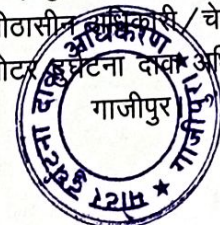 पीठासीन अधिकारी / चे
मोटर दुर्घटना दावा अधि
गाजीपुर।
मोटर दुर्घटना दावा अधिकरण
★ गाजीपुर ★